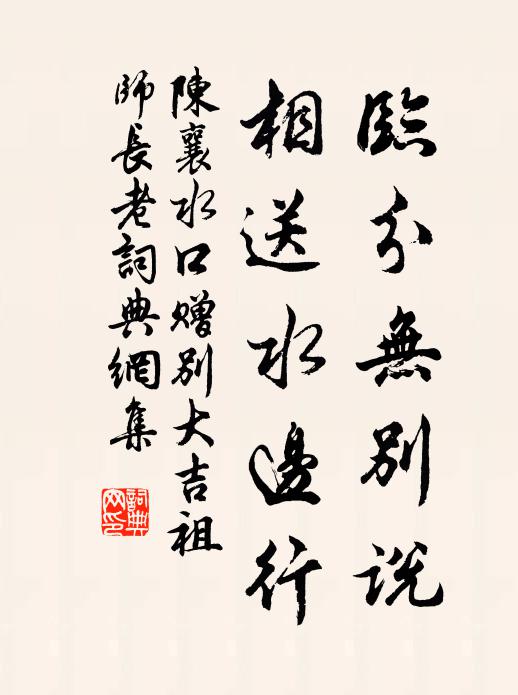 臨分無別説
相送水邊行
陳襄水口贈别大吉祖
師長老詞典網集
詞典網印